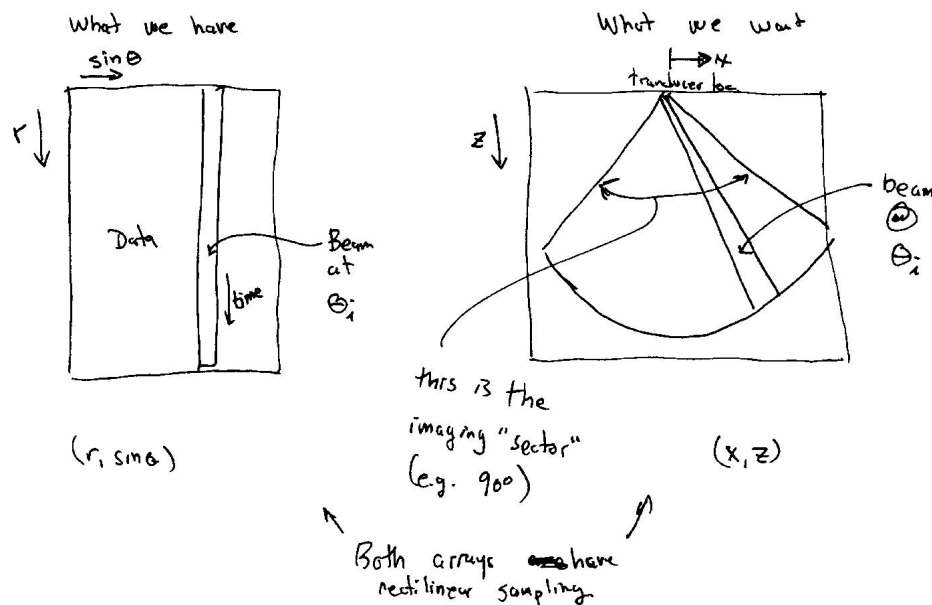 What we have
sinθ
r
Data
Beam
at
θi
time
(r, sinθ)
What we want
x
tranducer loc
z
beam
θi
this is the
imaging "sector"
(e.g. 90°)
(x, z)
Both arrays have
rectilinear sampling